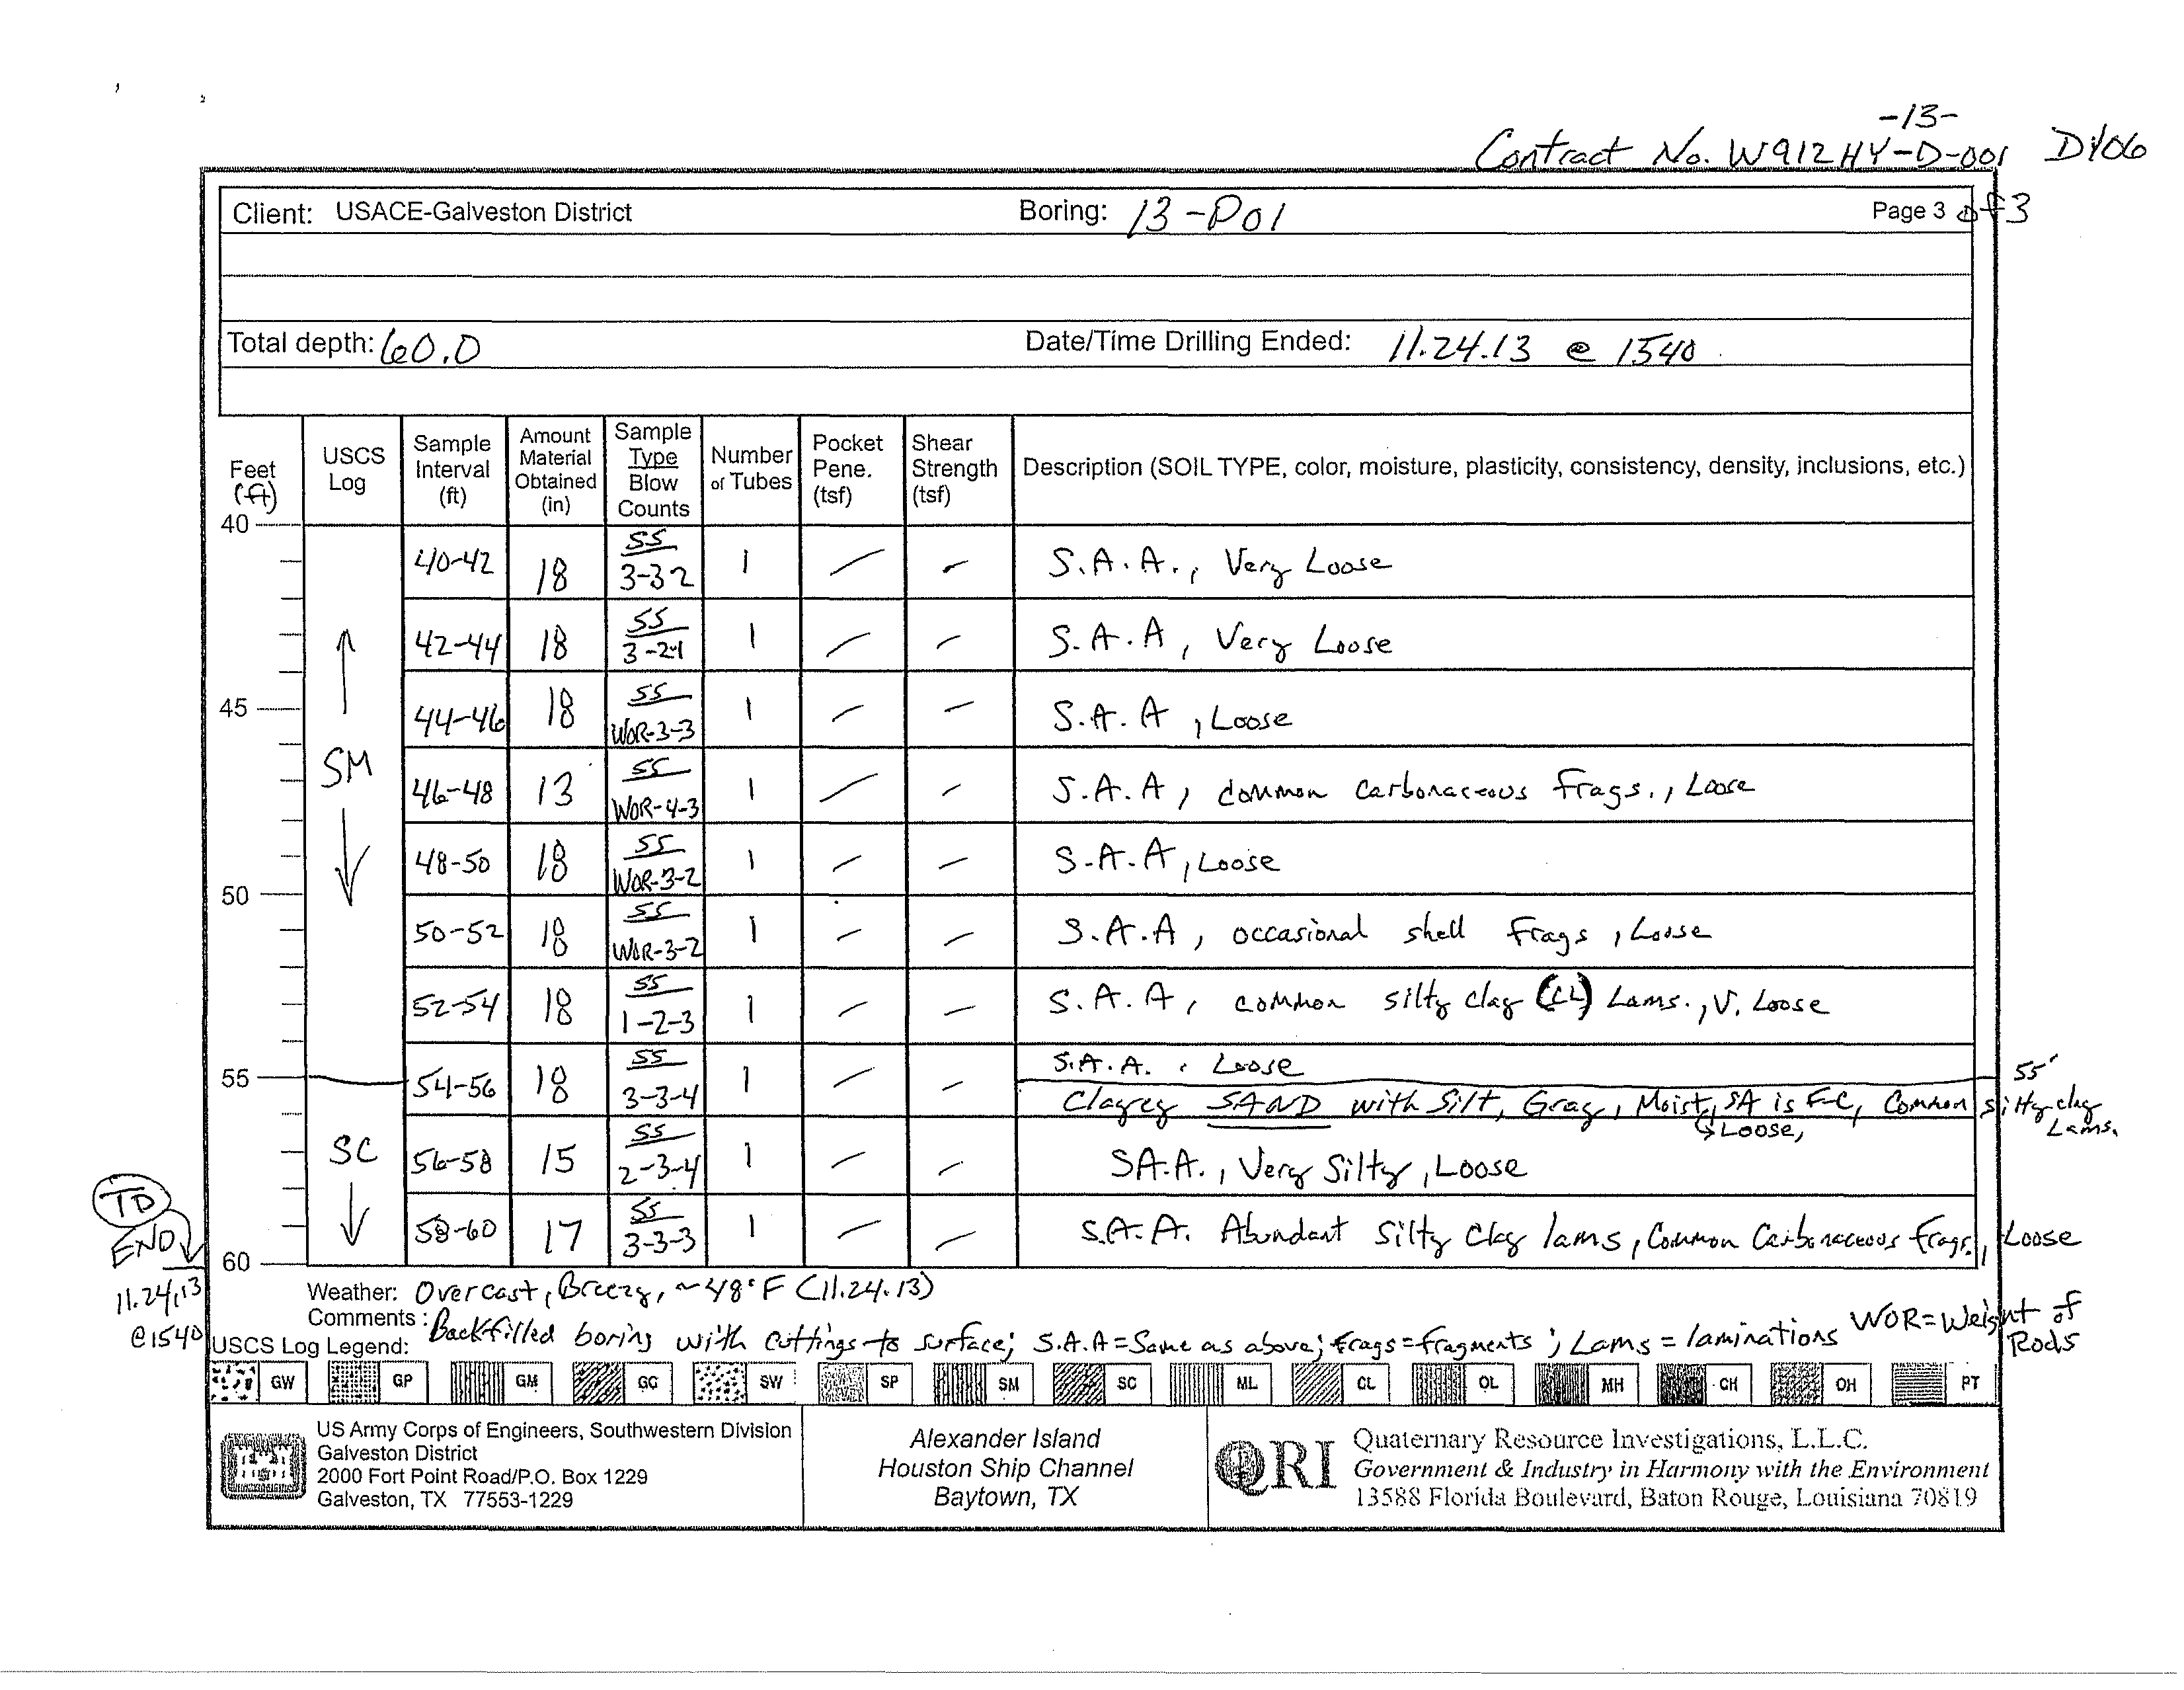 -13-
Contract No. W912HY-D-001 DY06
Client: USACE-Galveston District Boring: 13-P01 Page 3 of 3
Total depth: 60.0 Date/Time Drilling Ended: 11.24.13 @ 1540
Feet (ft) USCS Log Sample Interval (ft) Amount Material Obtained (in) Sample Type Blow Counts Number of Tubes Pocket Pene. (tsf) Shear Strength (tsf) Description (SOIL TYPE, color, moisture, plasticity, consistency, density, inclusions, etc.)
40
40-42 18 SS 3-3-2 1 — — S.A.A., Very Loose
42-44 18 SS 3-2-1 1 — — S.A.A, Very Loose
45 44-46 18 SS WOR-3-3 1 — — S.A.A, Loose
SM 46-48 13 SS WOR-4-3 1 — — S.A.A, common carbonaceous frags., Loose
48-50 18 SS WOR-3-2 1 — — S.A.A, Loose
50
50-52 18 SS WOR-3-2 1 — — S.A.A, occasional shell frags, Loose
52-54 18 SS 1-2-3 1 — — S.A.A, common silty clay (CL) Lams., V. Loose
55 54-56 18 SS 3-3-4 1 — — S.A.A. , Loose
55'
Clayey SAND with Silt, Gray, Moist, SA is F-C, Common silty clay Lams.
Loose,
SC 56-58 15 SS 2-3-4 1 — — S.A.A., Very Silty, Loose
58-60 17 SS 3-3-3 1 — — S.A.A. Abundant Silty Clay lams, Common Carbonaceous frags., Loose
60
TD
END
11.24.13
@1540
Weather: Overcast, Breezy, ~48°F (11.24.13)
Comments: Backfilled boring with cuttings to surface; S.A.A=Same as above; frags=fragments; Lams = laminations WOR=Weight of Rods
USCS Log Legend:
GW GP GM GC SW SP SM SC ML CL OL MH CH OH PT
US Army Corps of Engineers, Southwestern Division
Galveston District
2000 Fort Point Road/P.O. Box 1229
Galveston, TX 77553-1229
Alexander Island
Houston Ship Channel
Baytown, TX
QRI
Quaternary Resource Investigations, L.L.C.
Government & Industry in Harmony with the Environment
13588 Florida Boulevard, Baton Rouge, Louisiana 70819